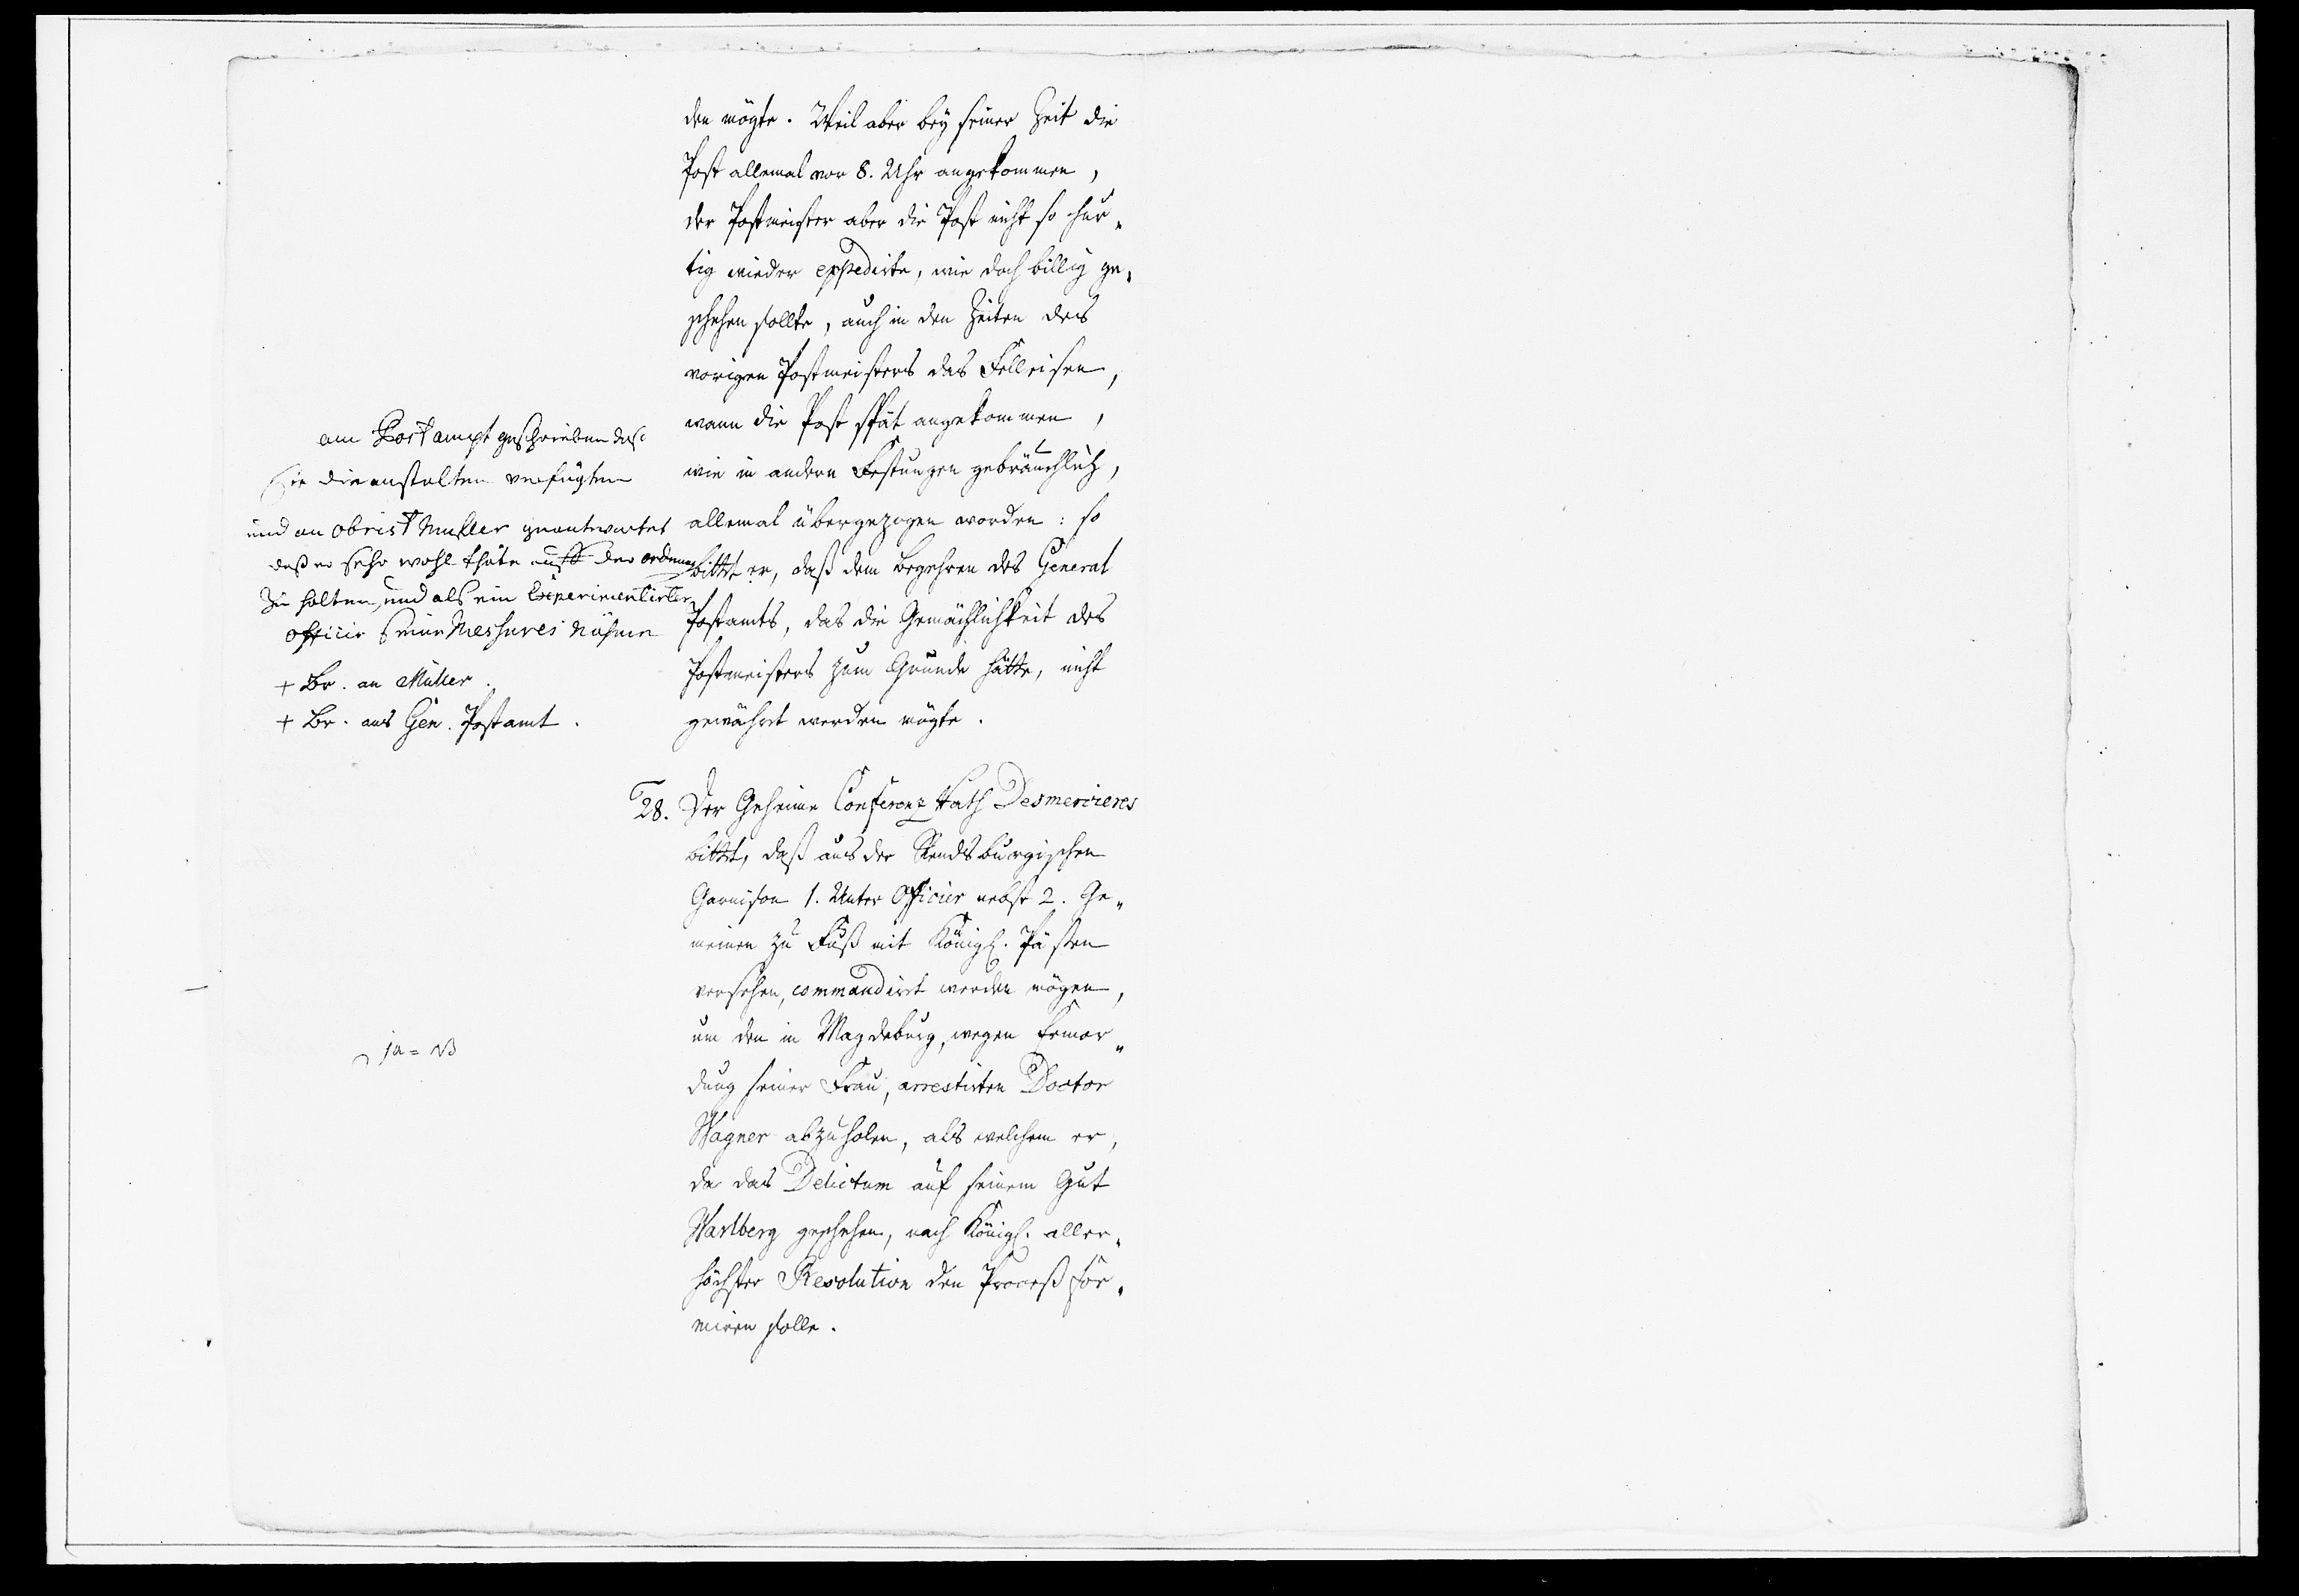 den mögte. Weil aber bey seiner Zeit die
Post allemal vor 8. Uhr angekommen,
der Postmeister aber die Post nicht so hur„
tig wieder expedirte, wie doch billig ge„
schehen sollte, auch in den Zeiten des
vorigen Postmeisters das Felleisen,
wann die Post spät angekommen,
wie in andern Festungen gebräuchlich,
allemal übergezogen worden: so
bittet er, daß dem Begehren des General
Postamts, das die Gemächlichkeit des
Postmeisters zum Grunde hätte, nicht
gewährt werden mögte.
am Postampt geschrieben daß
Sie die anstalten verfügten
und an Obrist Muller geantwortet
daß er sehr wohl thäte auff der ordnung
Zu halten, und als ein Experimentirter
Officir seine Messures nähme
+ Br. an Müller.
+ Br. ans Gen. Postamt.
28. Der Geheime Conferenz Rath Desmercieres
bittet, daß aus der Rendsburgischen
Garnison 1. Unter Officier nebst 2. Ge„
meinen zu Fuß mit Königl. Pässen
versehen, commandirt werden mögen,
um den in Magdeburg, wegen Ermor„
dung seiner Frau, arrestirten Doctor
Wagner abzuholen, als welchem er,
da das Delictum auf seinem Gut
Warlberg geschehen, nach Königl. aller„
höchster Resolution den Proceß for„
miren solle.
ja = NB